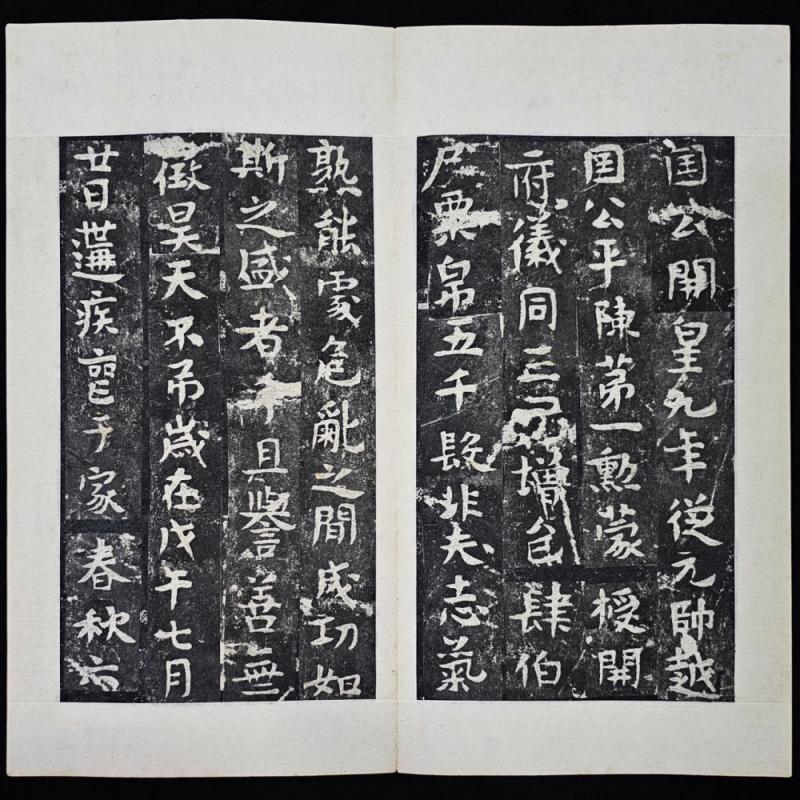 囯公開皇九年從元帥越
囯公平陳苐一勳蒙授開
府儀同三司增邑肆伯
戶粟帛五千段非夫志氣
熟能處危亂之間成功如
斯之盛者乎且譽善無
徵昊天不弔歲在戊午七月
廿日遘疾薨于家春秋六